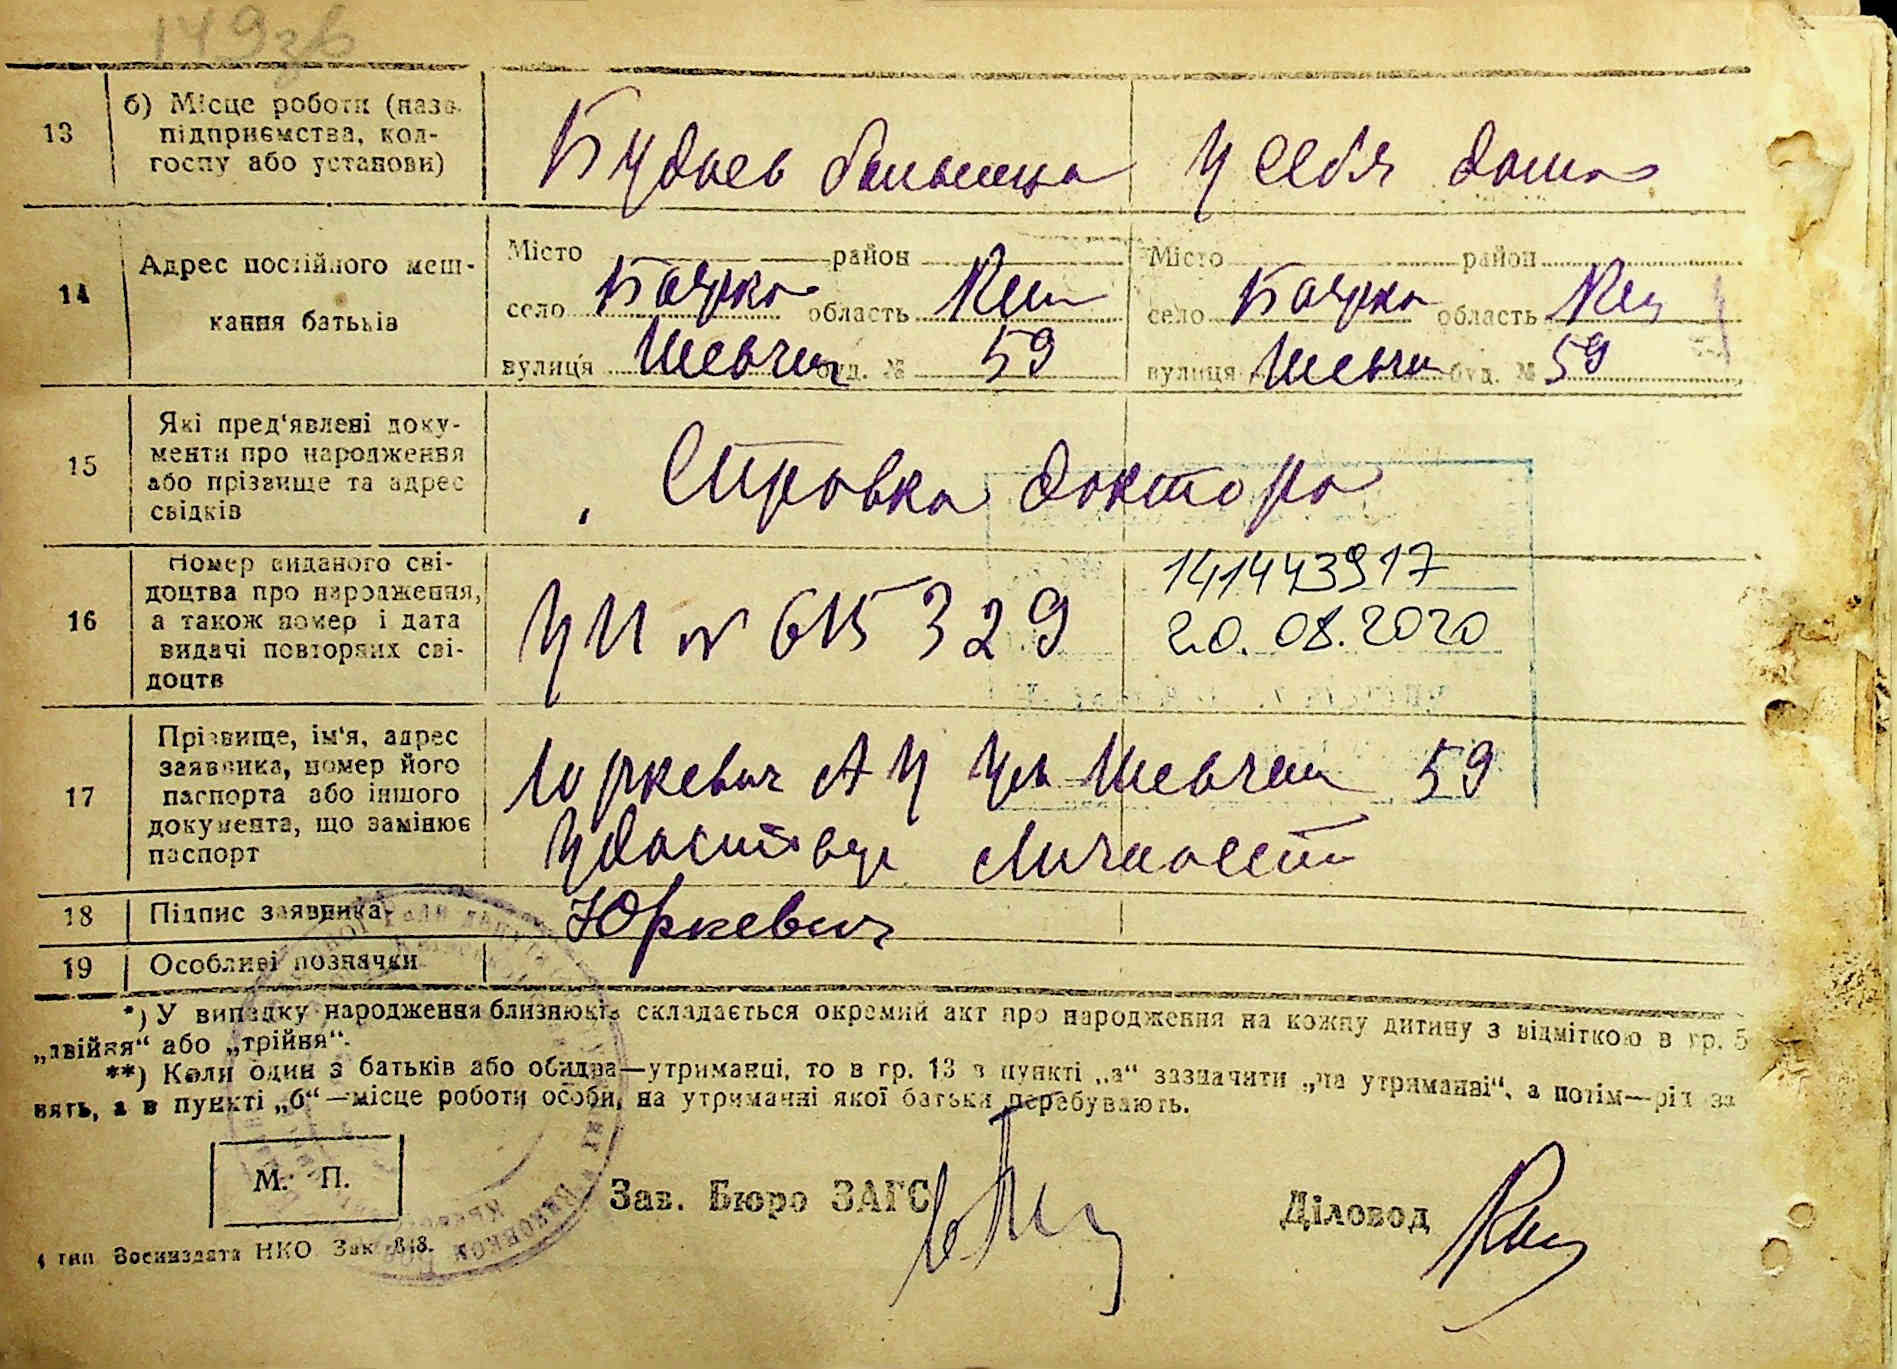 149зв
13 б) Місце роботи (назв. підприємства, колгоспу або установи) больница у себя дома
14 Адрес постійного мешкання батьків
Місто район Місто район
село Боярка область село Боярка область
вулиця Шевчен буд. № 59 вулиця Шевчен буд. № 59
15 Які пред'явлені документи про народження або прізвище та адрес свідків Справка доктора
16 Номер виданого свідоцтва про народження, а також номер і дата видачі повторних свідоцтв № 615329
141443917
20.08.2020
17 Прізвище, ім'я, адрес заявника, номер його паспорта або іншого документа, що замінює паспорт
Юркевич А У ул Шевчен 59
личности
18 Підпис заявника Юркевич
19 Особливі позначки
*) У випадку народження близнюків складається окремий акт про народження на кожну дитину з відміткою в гр. 5
„двійня“ або „трійня“.
**) Коли один з батьків або обидва—утриманці, то в гр. 13 в пункті „а“ зазначити „на утриманні“, а потім—рід за
нять, а в пункті „б“—місце роботи особи, на утриманні якої батьки перебувають.
М. П.
Зав. Бюро ЗАГС Діловод
тип. Воениздата НКО Зак.